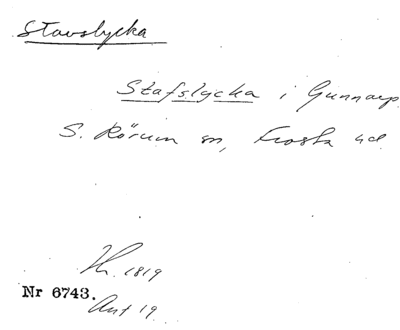 Stavslycka
Stafslycka i Gunnarp
S. Rörum sn, Frosta hd
Nr 6743.
Ant 19